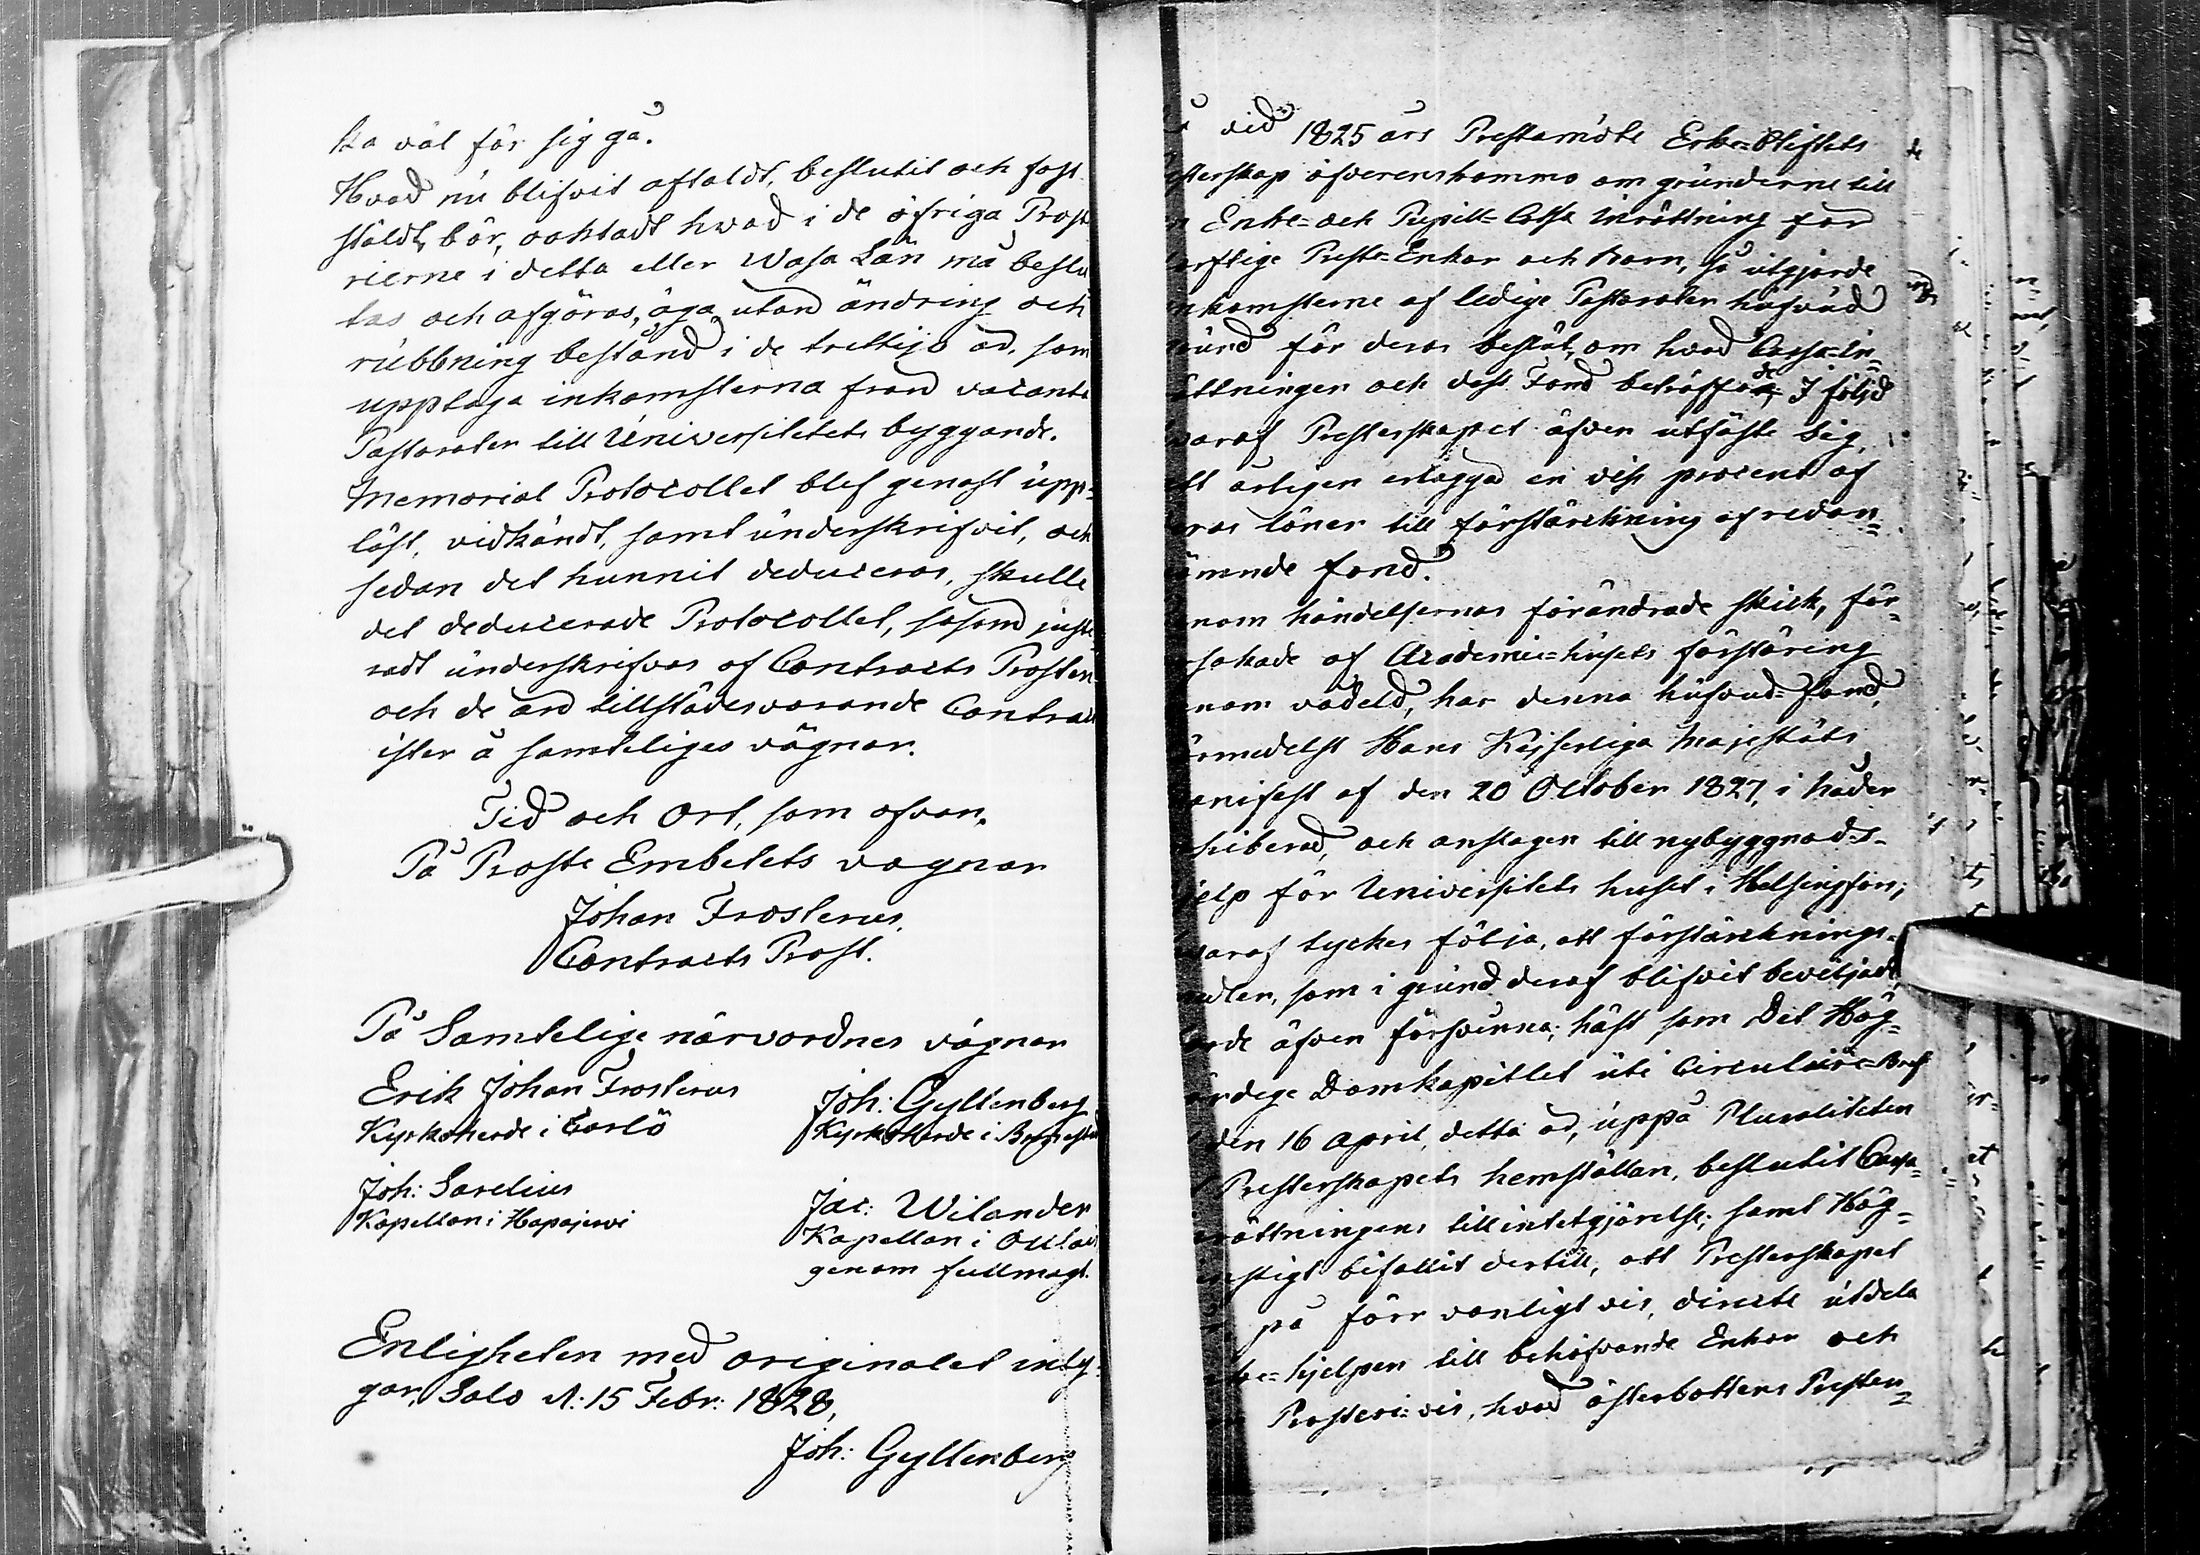 ka väl för sig gå.
Hvad nu blifvit aftaldt, beslutit och fast
stäldt, bör, oaktadt hvad i de öfriga Prost
rierne i detta eller Wasa Län må beslu
tas och afgöras, äga utan ändring och
rubbning bestånd i de trettijo år, som
upptaga inkomsterna från vacante
Pastorater till Universitetets byggande.
Memorial Protocollet blef genast upp-
läst, vidkändt, samt underskrifvit, och
sedan det hunnit deduceras, skulle
det deducerade Protocollet, såsom juste
radt underskrifvas af Contracts Prosten
och de än tillstädesvarande Contract
ister å samteliges vägnar.
Tid och Ort, som ofvan.
På Proste Embetets vägnar
Johan Frosterus,
Contracts Prost.
På Samtelige närvordnes vägnar
Erik Johan Frosterus
Kyrkoherde i Carlö
Joh: Gyllenberg
Kyrkoherde i
Joh: Sarelius
Kapellan i Hapajervi
Jac: Wilander
Kapellan i Oulai
genom fullmagt.
Enligheten med originalet inty-
gar, Salo d: 15 Febr: 1828,
Joh: Gyllenberg
vid 1825 års Prestamöte Erke-Stiftets
sterskap öfverenskommo om grunderne till
n Enke- och Pupill-Cassa inrättning för
orftige Preste-Enkor och Barn, så utgjorde
nkomsterne af ledige Pastorater hufvud
rund för deras beslut, om hvad Cassa-In-
ättningen och dess Fond beträffade. I följd
varaf Presterskapet äfven utfäste sig,
tt årligen erlägga en viss procent af
ras löner till förstärckning af redan-
ämnde fond.
nom händelsernas förändrade skick, för-
rsakade af Academie-husets förstöring
nom vådeld, har denna hufvud-fond,
rmedelst Hans Kejserliga Majestäts
anifest af den 20 October 1827, i häder
hiberad, och anslagen till nybyggnads-
jelp för Universitets huset i Helsingfors;
varaf tyckes följa, att förstärcknings-
edlen, som i grund deraf blifvit beviljade,
orde äfven försvinna; häst som Det Hög-
ärdige Domkapitlet uti Circulaire-Bref
den 16 April, detta år, uppå Pluraliteten
Presterskapets hemställan, beslutit Cassa-
rättningens tillintetgjörelse; samt Hög-
nstigt bifallit dertill, att Presterskapet
på förr vanligt vis, directe utdela
e-hjelpen till behöfvande Enkor och
Prosteri-vis, hvad österbottens Prester-